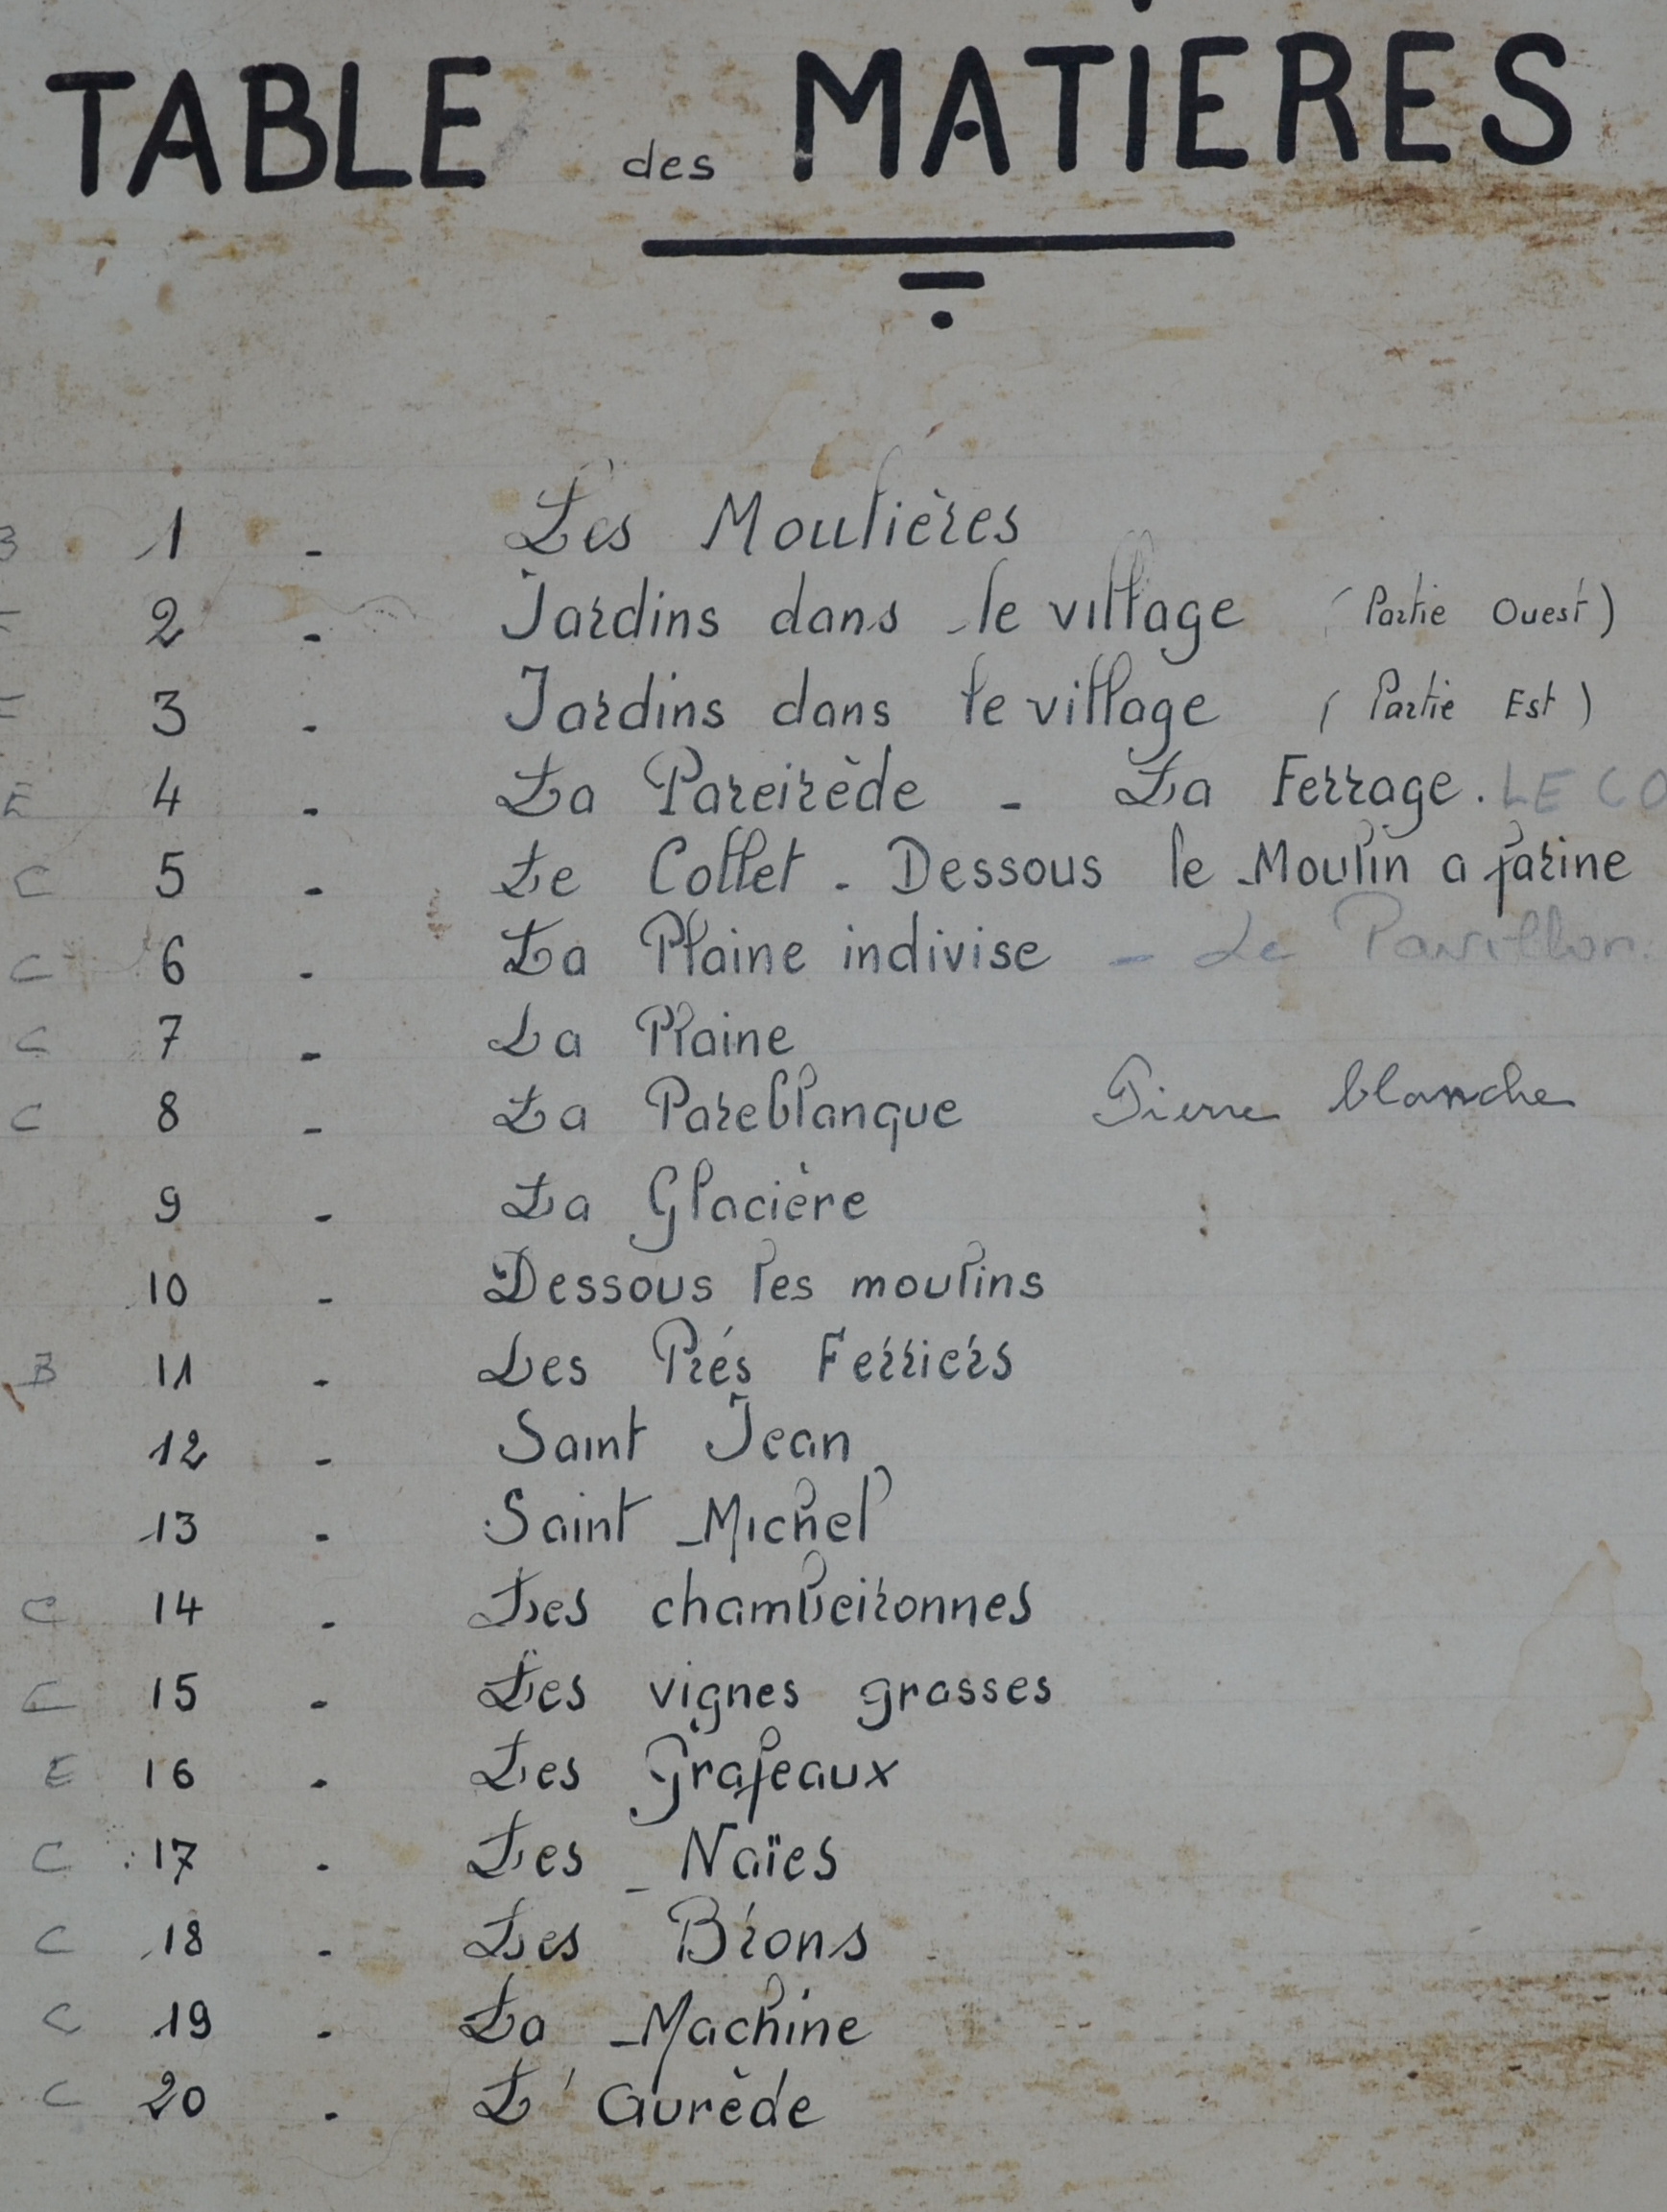 TABLE des MATIERES
B 1 - Les Moulières
2 - Jardins dans le village (Partie Ouest)
3 - Jardins dans le village (Partie Est)
E 4 - La Pareirède - La Ferrage. LE CO
C 5 - Le Collet - Dessous le Moulin a farine
C 6 - La Plaine indivise - Le Pavillon.
C 7 - La Plaine
C 8 - La Pareblanque Pierre blanche
9 - La Glacière
10 - Dessous les moulins
B 11 - Les Prés Ferriers
12 - Saint Jean
13 - Saint Michel
C 14 - Les chambeironnes
C 15 - Les vignes grasses
E 16 - Les Grafeaux
C 17 - Les Naïes
C 18 - Les Brons
C 19 - La Machine
C 20 - L'aurède